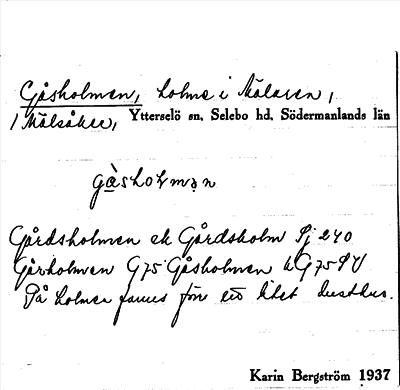 Gåsholmen, holme i Mälaren,
i Mälsåker, Ytterselö sn, Selebo hd, Södermanlands län
gåsholmən
Gårdsholmen ek Gårdsholm Sj 240
Gåsholmen G75 Gåsholmen hG75
På holmen fanns förr ett litet lusthus.
Karin Bergström 1937